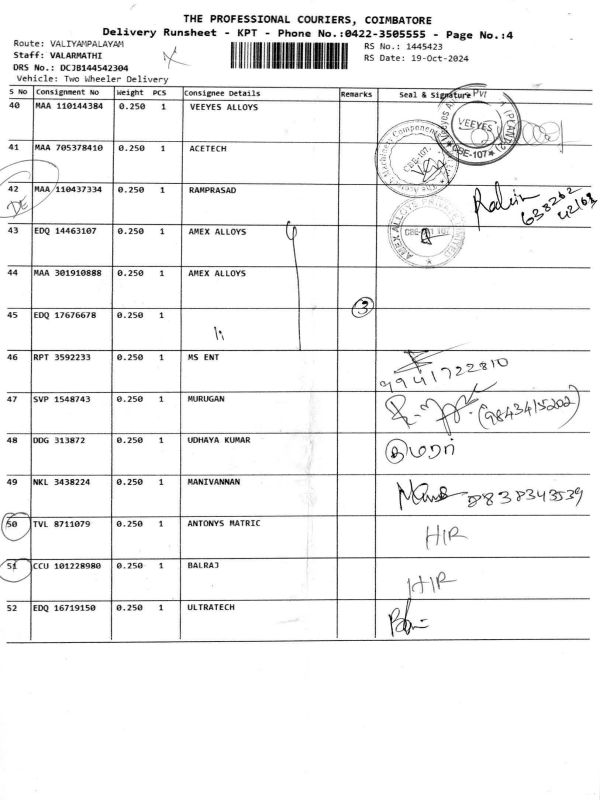 THE PROFESSIONAL COURIERS, COIMBATORE
Delivery Runsheet - KPT - Phone No.:0422-3505555 - Page No.:4
Route: VALIYAMPALAYAM
RS No.: 1445423
Staff: VALARMATHI
RS Date: 19-Oct-2024
DRS No.: DCJB144542304
Vehicle: Two Wheeler Delivery
S No Consignment No Weight PCS Consignee Details Remarks Seal & Signature
40 MAA 110144384 0.250 1 VEEYES ALLOYS VEEYES CBE-107
41 MAA 705378410 0.250 1 ACETECH CBE-107
42 MAA 110437334 0.250 1 RAMPRASAD
DE
43 EDQ 14463107 0.250 1 AMEX ALLOYS AMEX ALLOYS PRIVATE LIMITED
44 MAA 301910888 0.250 1 AMEX ALLOYS
45 EDQ 17676678 0.250 1 3
46 RPT 3592233 0.250 1 MS ENT 9941722810
47 SVP 1548743 0.250 1 MURUGAN
48 DDG 313872 0.250 1 UDHAYA KUMAR
49 NKL 3438224 0.250 1 MANIVANNAN 8838343539
50 TVL 8711079 0.250 1 ANTONYS MATRIC HIR
51 CCU 101228980 0.250 1 BALRAJ HIR
52 EDQ 16719150 0.250 1 ULTRATECH